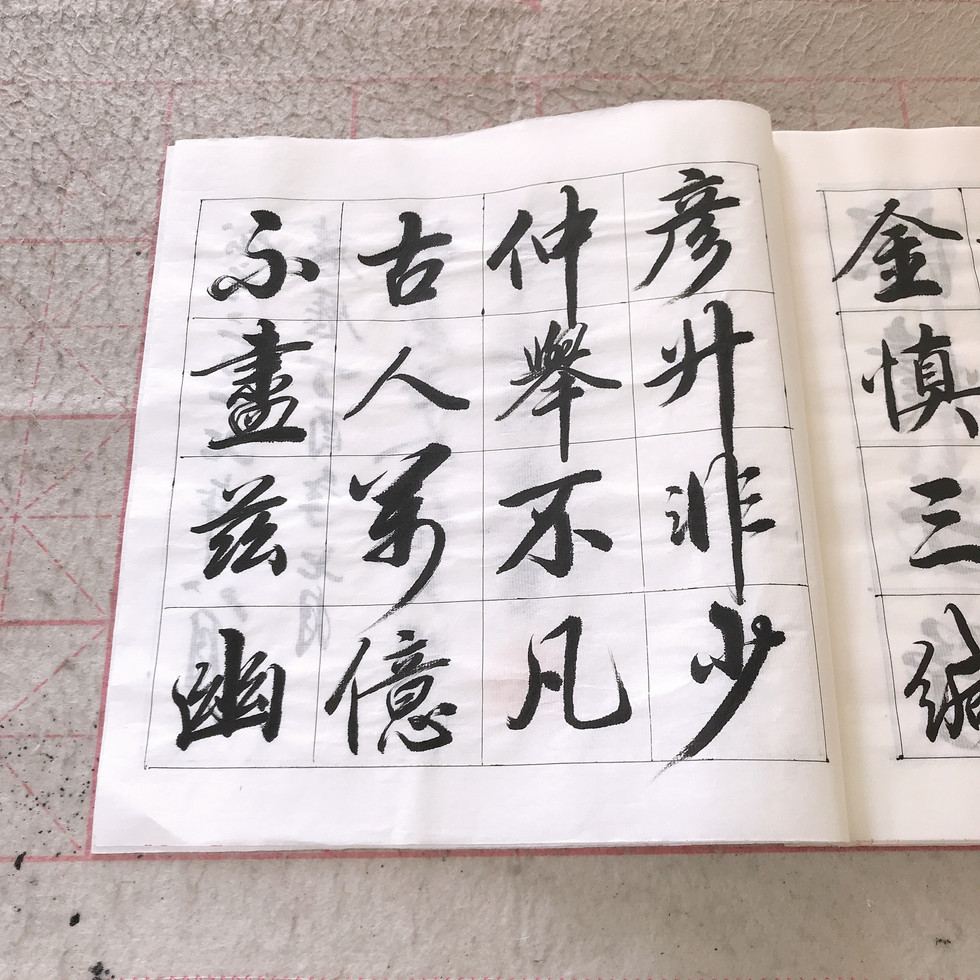 金慎三緘
彥升非少
仲舉不凡
古人萬億
不盡茲幽